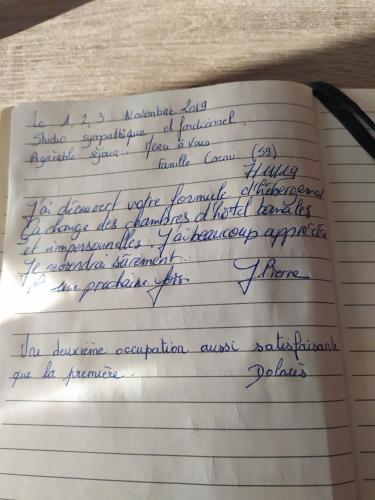 Le 1, 2, 3 Novembre 2019
Studio sympathique et fonctionnel.
Agréable séjour. Merci à vous
Famille (59)
J'ai découvert votre formule d'hébergement
Ça change des chambres d'hôtel banales
et impersonnelles. J'ai beaucoup apprécié
Je reviendrai sûrement.
À une prochaine fois J. Pierre
Une deuxième occupation aussi satisfaisante
que la première.
Dolorès